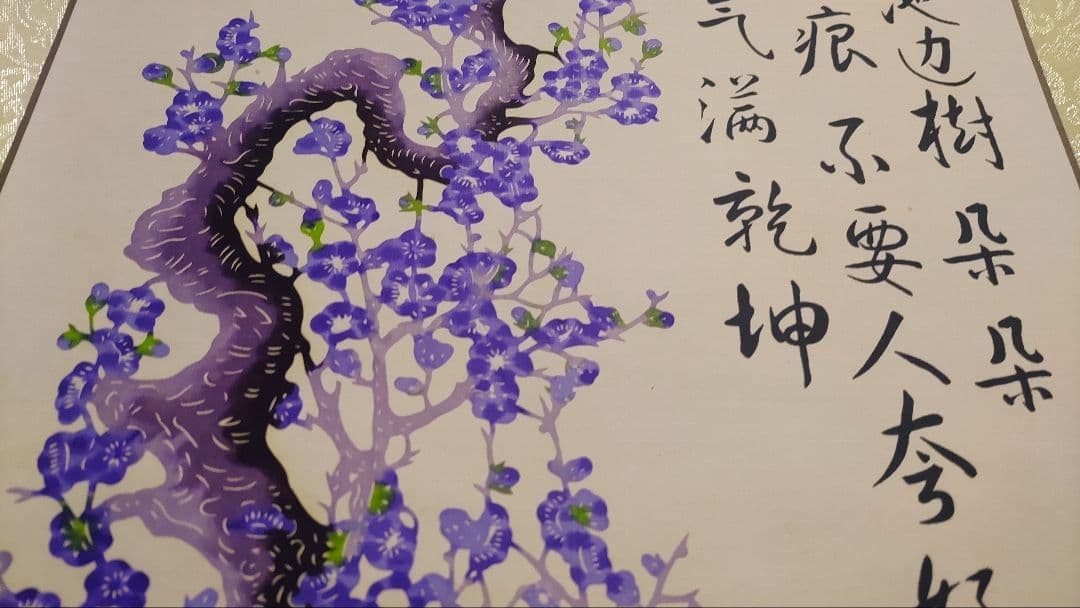 池边樹朵朵
痕不要人夸好
气满乾坤